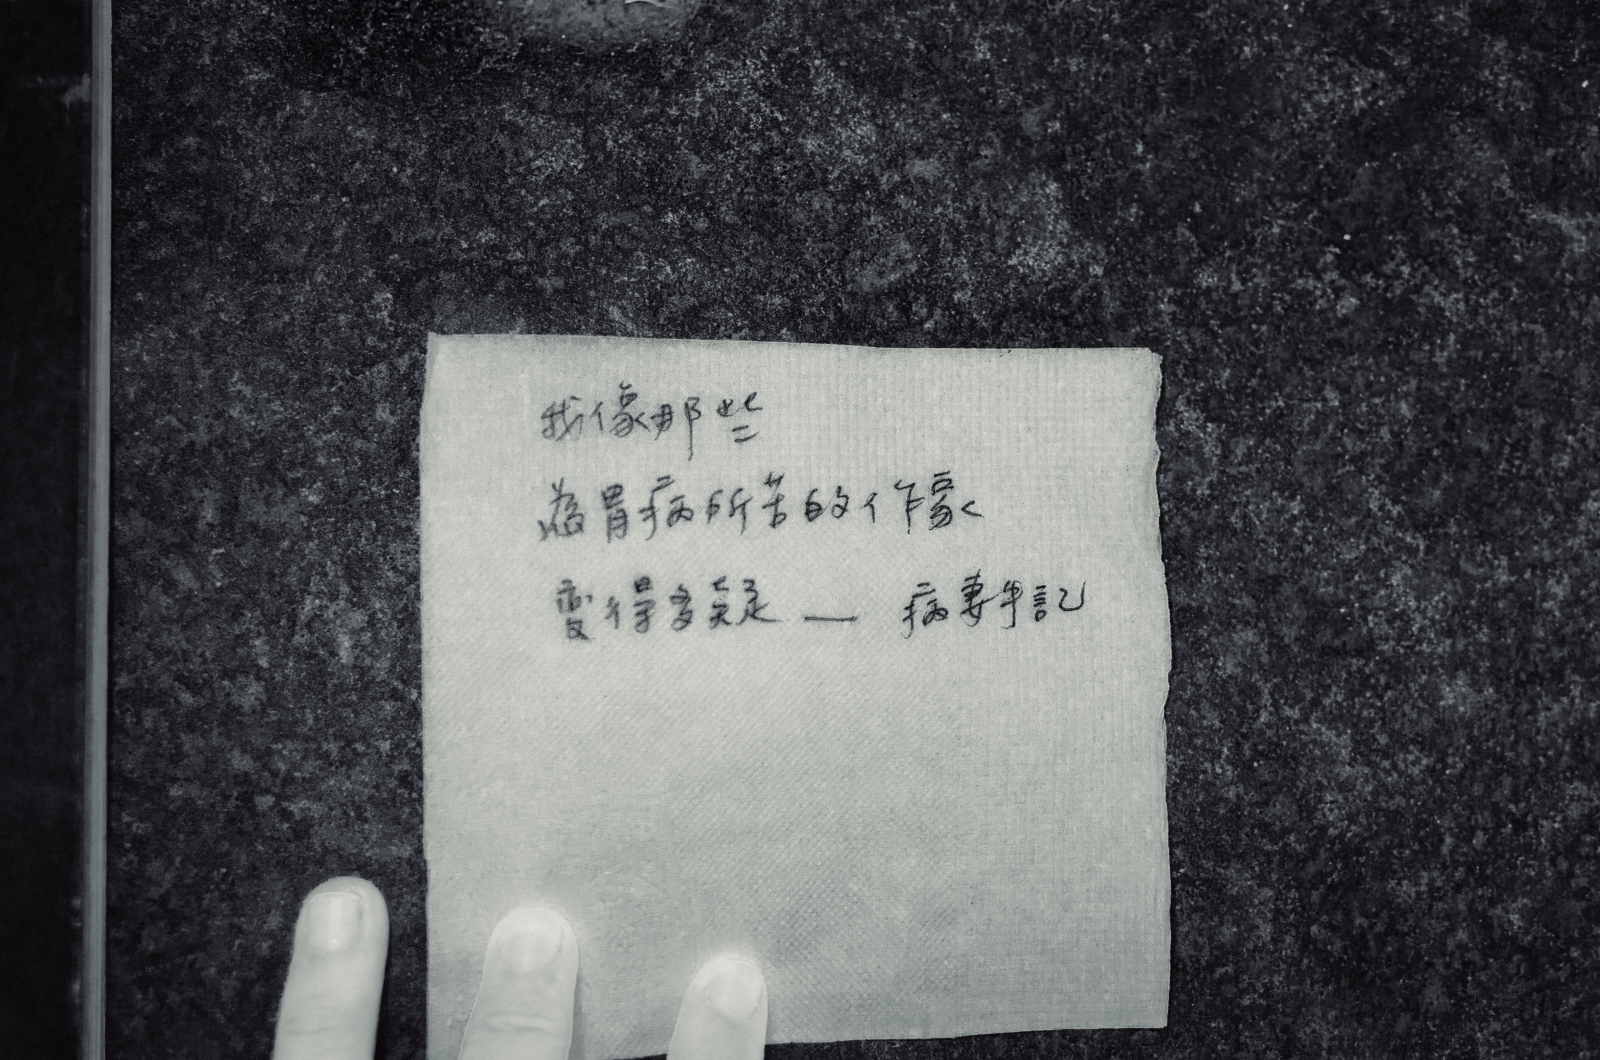 我像那些
為胃病所苦的作家
變得多疑 — 病妻手記